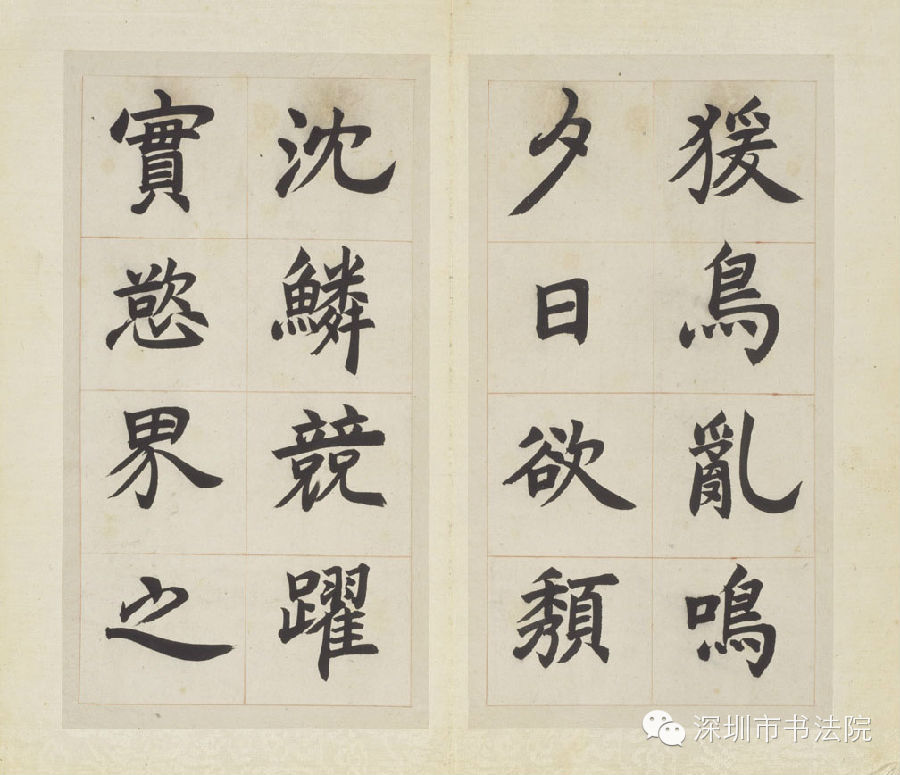 猨鳥亂鳴
夕日欲頹
沈鱗競躍
實慾界之
深圳市书法院